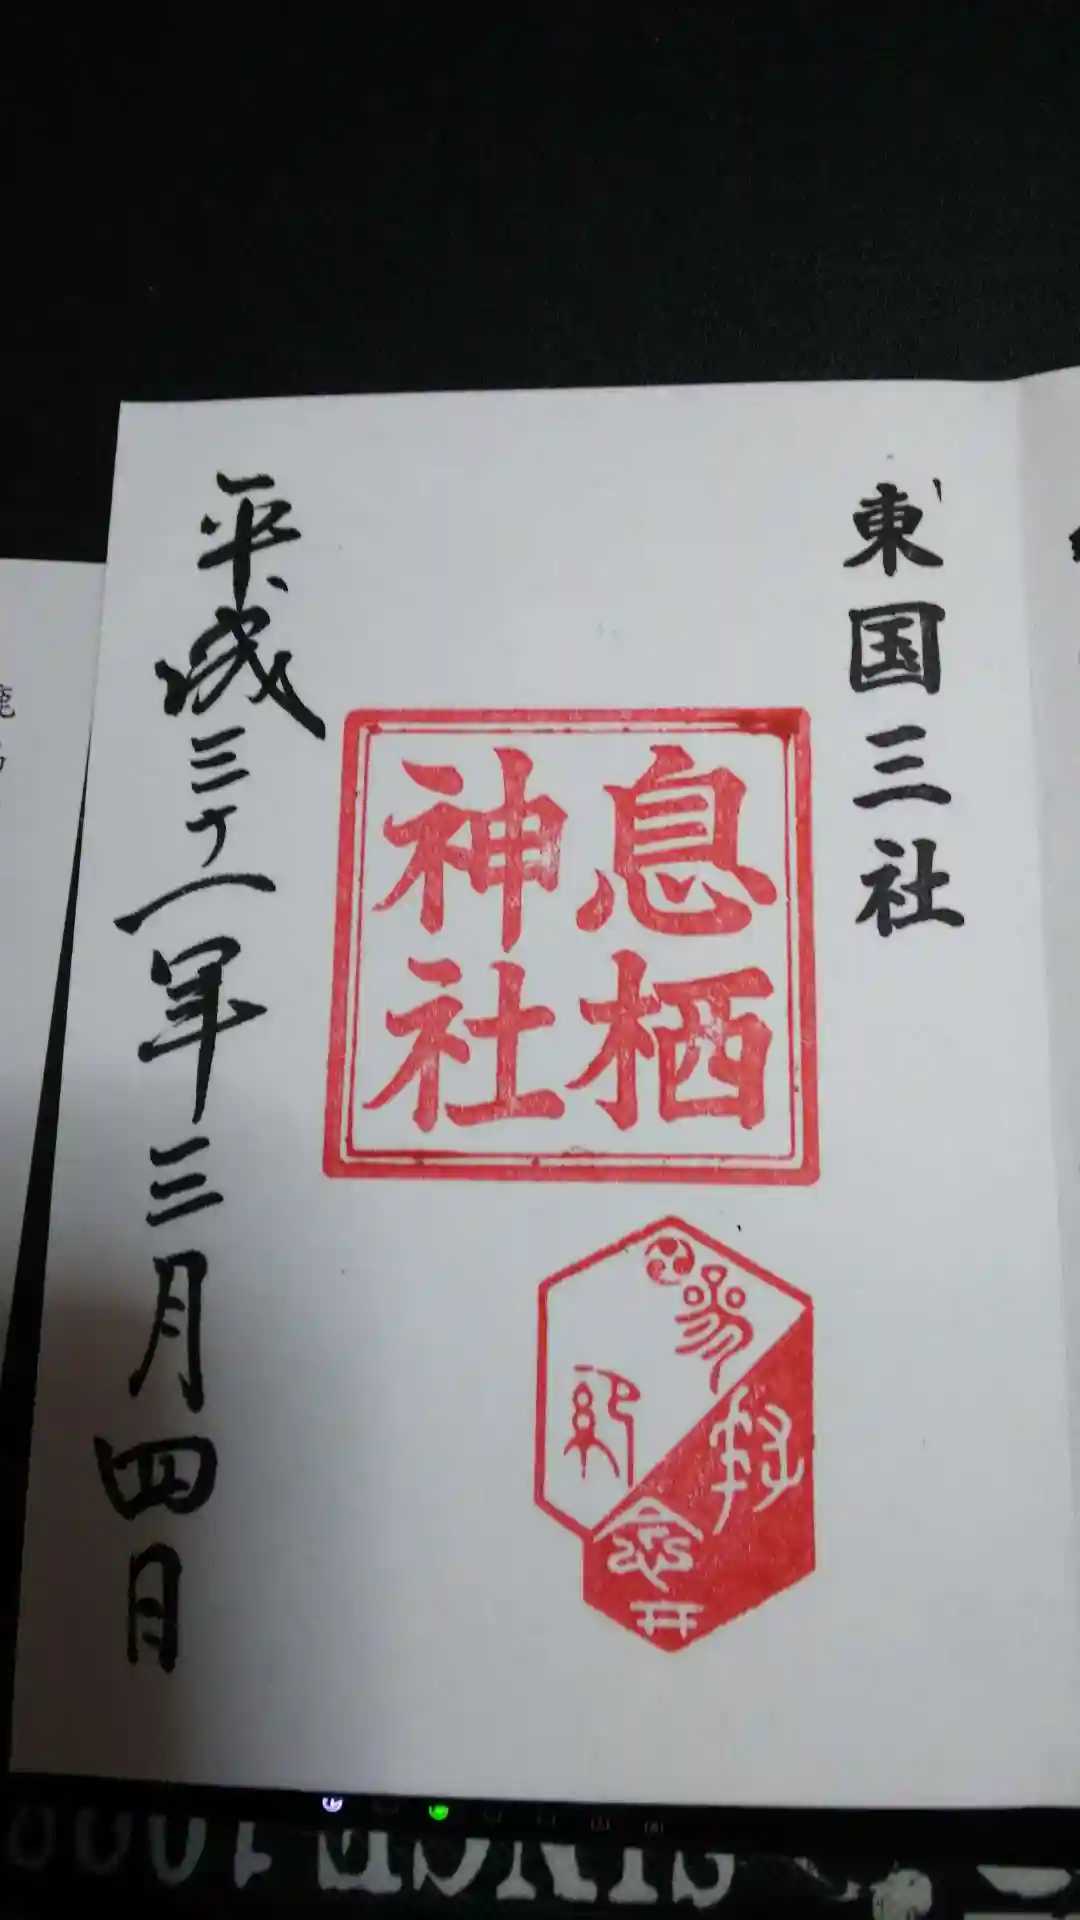 東国三社
息栖
神社
平成三十一年三月四日